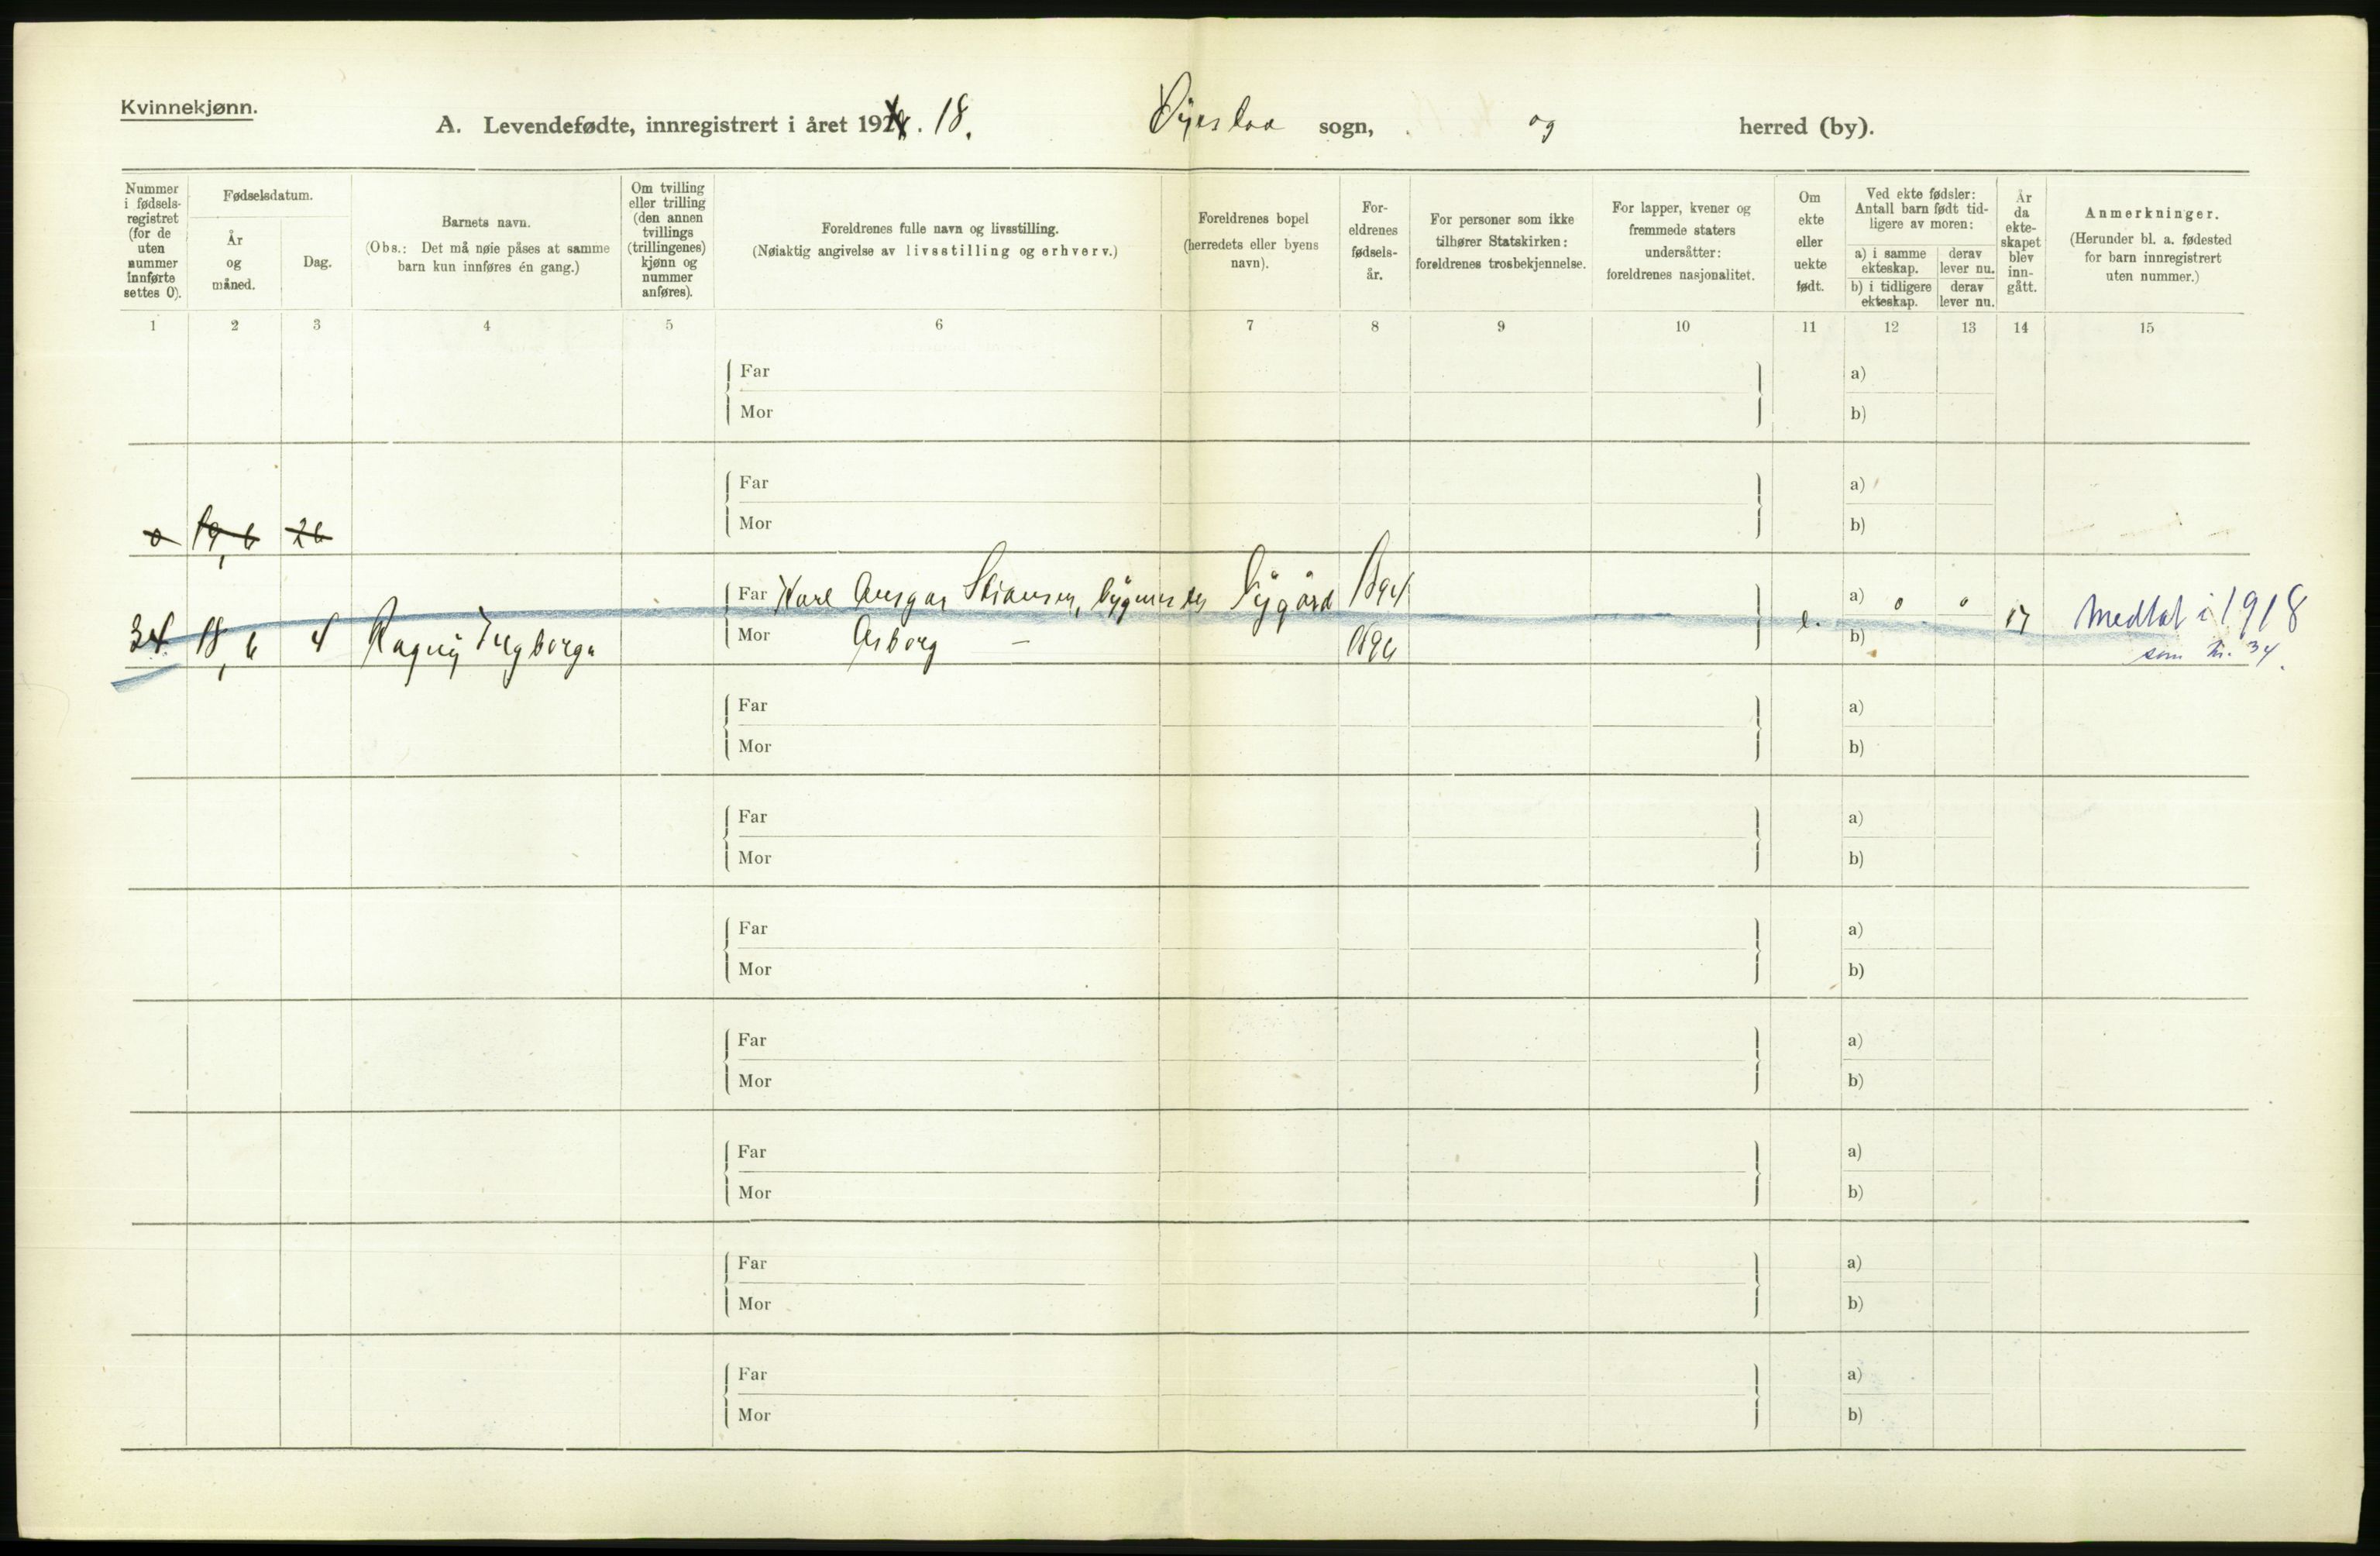 Kvinnekjønn.
A. Levendefødte, innregistrert i året 192 . 18. Øyestad sogn, og herred (by).
Nummer i fødsels-registret (for de uten nummer innførte settes 0).
Fødselsdatum.
År og måned.
Dag.
Barnets navn.
(Obs.: Det må nøie påses at samme barn kun innføres én gang.)
Om tvilling eller trilling (den annen tvillings (trillingenes) kjønn og nummer anføres).
Foreldrenes fulle navn og livsstilling.
(Nøiaktig angivelse av livsstilling og erhverv.)
Foreldrenes bopel (herredets eller byens navn).
For-eldrenes fødsels-år.
For personer som ikke tilhører Statskirken: foreldrenes trosbekjennelse.
For lapper, kvener og fremmede staters undersåtter: foreldrenes nasjonalitet.
Om ekte eller uekte født.
Ved ekte fødsler: Antall barn født tid-ligere av moren:
a) i samme ekteskap.
derav lever nu.
b) i tidligere ekteskap.
derav lever nu.
År da ekte-skapet blev inn-gått.
Anmerkninger.
(Herunder bl. a. fødested for barn innregistrert uten nummer.)
1 2 3 4 5 6 7 8 9 10 11 12 13 14 15
Far a)
Mor b)
Far a)
0 19, 6 26 Mor b)
Far Karl Ansgar bygmester 1894 a) 0 0
34 18, 6 4 Ragny Ingborg Mor Asborg — 1896 e. b) 17 Medtat i 1918
som nr. 34.
Far a)
Mor b)
Far a)
Mor b)
Far a)
Mor b)
Far a)
Mor b)
Far a)
Mor b)
Far a)
Mor b)
Far a)
Mor b)